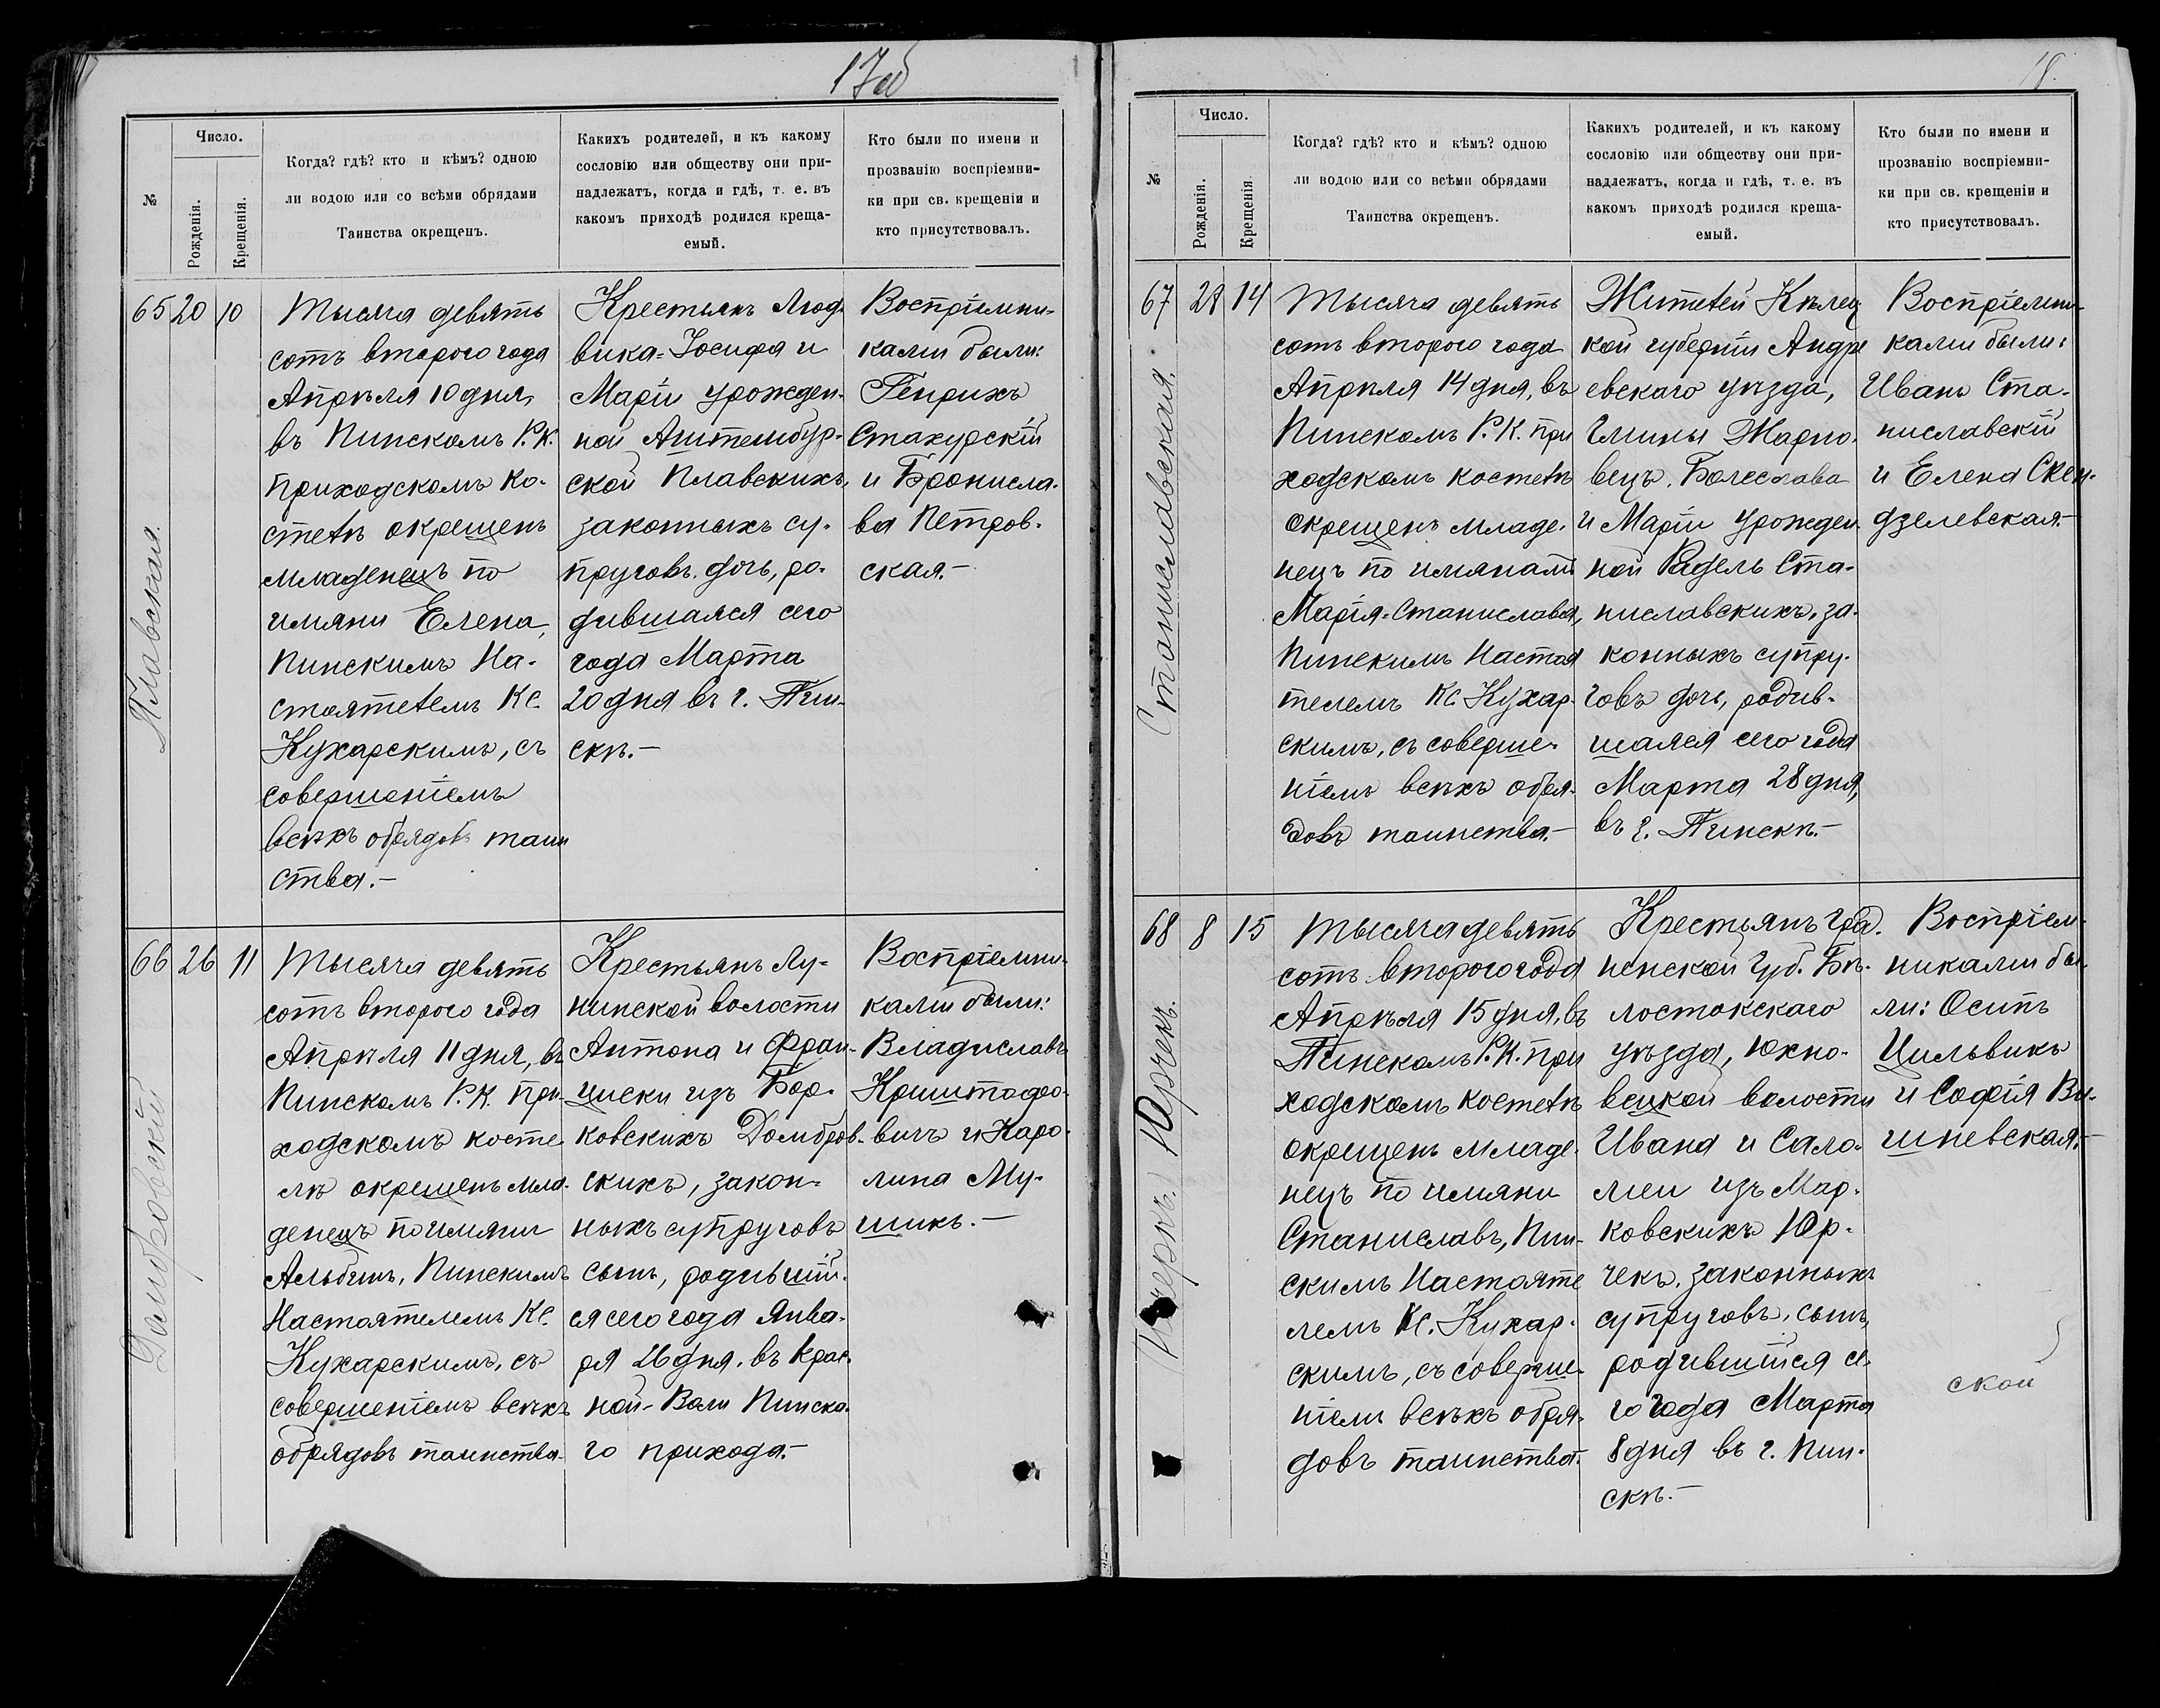 17об
№
Число.
Рожденія.
Крещенія.
Когда? гдѣ? кто и кѣмъ? одною
ли водою или со всѣми обрядами
Таинства окрещенъ.
Какихъ родителей, и къ какому
сословію или обществу они при-
надлежатъ, когда и гдѣ, т. е. въ
какомъ приходѣ родился креща-
емый.
Кто были по имени и
прозванію воспріемни-
ки при св. крещеніи и
кто присутствовалъ.
Плавская.
65 20 10
Тысяча девять
сотъ второго года
Апрѣля 10 дня,
въ Пинскомъ Р.К.
приходскомъ ко-
стелѣ окрещенъ
младенецъ по
имяни Елена,
Пинскимъ На-
стоятелемъ Кс.
Кухарскимъ, съ
совершеніемъ
всѣхъ обрядовъ таин
ства.-
Крестьянъ Люд-
вика-Іосифа и
Маріи урожден-
ной Аштембур-
ской Плавскихъ,
законныхъ су-
пруговъ дочь, ро-
дившаяся сего
года Марта
20 дня въ г. Пин-
скѣ.-
Воспріемни-
ками были:
Генрихъ
Стахурскій
и Бронисла-
ва Петров-
ская.-
Домбровскій
66 26 11
Тысяча девять
сотъ второго года
Апрѣля 11 дня, въ
Пинскомъ Р.К. при-
ходскомъ косте-
лѣ окрещенъ мла-
денецъ по имяни
Альбинъ, Пинскимъ
Настоятелемъ Кс.
Кухарскимъ, съ
совершеніемъ всѣхъ
обрядовъ таинства-
Крестьянъ Лу-
нинской волости
Антона и Фран-
циски изъ Бор-
ковскихъ Домбров-
скихъ, закон-
ныхъ супруговъ
сынъ, родившій-
ся сего года Янва-
ря 26 дня, въ Крас-
ной-Воли Пинска-
го прихода.-
Воспріемни-
ками были:
Владиславъ
Криштофо-
вичъ и Каро-
лина Му-
шикъ.-
18.
№
Число.
Рожденія.
Крещенія.
Когда? гдѣ? кто и кѣмъ? одною
ли водою или со всѣми обрядами
Таинства окрещенъ.
Какихъ родителей, и къ какому
сословію или обществу они при-
надлежатъ, когда и гдѣ, т. е. въ
какомъ приходѣ родился креща-
емый.
Кто были по имени и
прозванію воспріемни-
ки при св. крещеніи и
кто присутствовалъ.
Станиславская.
67 28 14
Тысяча девять
сотъ второго года
Апрѣля 14 дня, въ
Пинскомъ Р.К. при
ходскомъ костелѣ
окрещенъ младе-
нецъ по имянамъ
Марія-Станислава,
Пинскимъ Настоя
телемъ Кс. Кухар-
скимъ, съ соверше-
ніемъ всѣхъ обря-
довъ таинства.-
Жителей Кѣлец
кой губерніи Андре
евскаго уѣзда,
Гмины Жарно-
вецъ, Болеслава
и Маріи урожден-
ной Радель Ста-
ниславскихъ, за-
конныхъ супру-
говъ дочь, родив-
шаяся сего года
Марта 28 дня,
въ г. Пинскѣ.-
Воспріемни-
ками были:
Иванъ Ста-
ниславскій
и Елена Скен-
дзелевская.-
Юрчекъ.
68 8 15
Тысяча девять
сотъ второго года
Апрѣля 15 дня, въ
Пинскомъ Р.К. при
ходскомъ костелѣ
окрещенъ младе-
нецъ по имяни
Станиславъ, Пин-
скимъ Настояте
лемъ Кс. Кухар-
скимъ, съ соверше-
ніемъ всѣхъ обря-
довъ таинства.-
Крестьянъ Грод-
ненской Губ. Бѣ-
лостокскаго
уѣзда, Юхно-
вецкой волости
Ивана и Сало-
меи изъ Мар-
ковскихъ Юр-
чекъ, законныхъ
супруговъ, сынъ,
родившійся се-
го года Марта
8 дня въ г. Пин-
скѣ.-
Воспріем-
никами бы-
ли: Осипъ
Цильвикъ
и Софія Ви-
шневская.-
ской